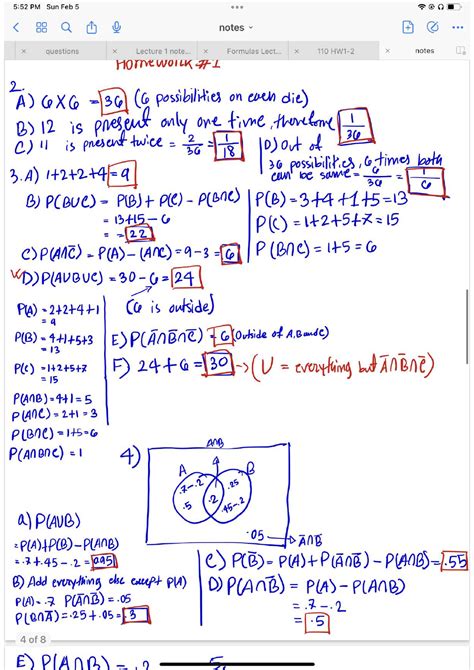 5:52 PM Sun Feb 5
notes
questions
Lecture 1 note...
Formulas Lect...
110 HW1-2
notes
Homework #1
2.
A) 6x6 = 36 (6 possibilities on each die)
B) 12 is present only one time, therefore 1/36
C) 11 is present twice = 2/36 = 1/18
D) Out of
36 possibilities, 6 times both
can be same = 6/36 = 1/6
3. A) 1+2+2+4 = 9
B) P(BUC) = P(B) + P(C) - P(B∩C)
= 13+15-6
= 22
P(B) = 3+4+1+5 = 13
P(C) = 1+2+5+7 = 15
P(B∩C) = 1+5 = 6
C) P(A∩C̅) = P(A) - (A∩C) = 9-3 = 6
D) P(AUBUC) = 30-6 = 24
(6 is outside)
P(A) = 2+2+4+1
= 9
P(B) = 4+1+5+3
= 13
P(C) = 1+2+5+7
= 15
P(A∩B) = 4+1 = 5
P(A∩C) = 2+1 = 3
P(B∩C) = 1+5 = 6
P(A∩B∩C) = 1
E) P(A̅∩B̅∩C̅) = 6 (Outside of A, B and C)
F) 24+6 = 30 -> (U = everything but A̅∩B̅∩C̅)
4)
A∩B
A
B
.7-.2
.5
.2
.25
.45-.2
.05 -> A̅∩B̅
a) P(AUB)
= P(A)+P(B)-P(A∩B)
= .7+.45-.2 = 0.95
B) Add everything else except P(A)
P(A) = .7 P(A̅∩B̅) = .05
P(B∩A̅) = .25+.05 = .3
C) P(B̅) = P(A) + P(A̅∩B̅) - P(A∩B) = .55
D) P(A∩B̅) = P(A) - P(A∩B)
= .7-.2
= .5
4 of 8